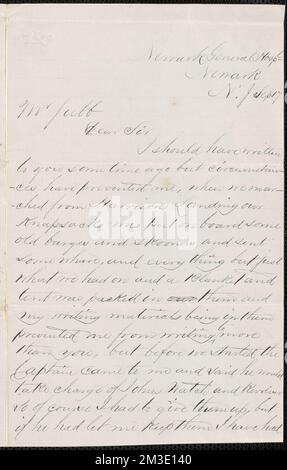 Newark General Hosp
Newark
N. J. Sept
Mr Jubb
Dear Sir
I should have written
to you some time ago but circumstan
-ces have prevented me, when we mar
-ched from Harrisons Landing our
Knapsacks was put on board some
old barges and Skooners and sent
some where, and every thing but just
what we had on and a Blanket and
tent was packed in them and
my writing materials being in them
prevented me from writing more
than you, but before we started the
Captain came to me and said he would
take charge of Johns Watch and Revolver
so of course I had to give them up but
if he had let me keep them I have had
alamy
Image ID: 2ME3140
www.alamy.com